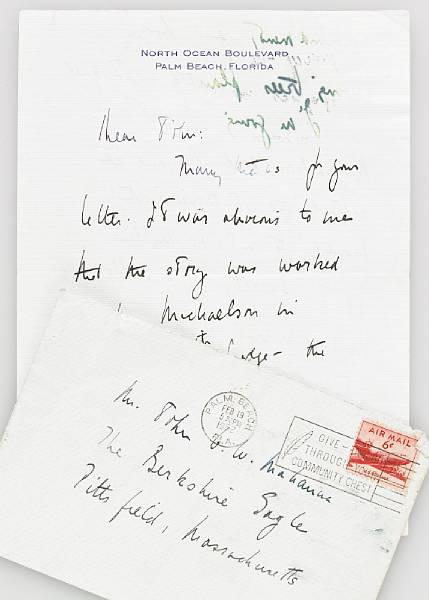 NORTH OCEAN BOULEVARD
PALM BEACH, FLORIDA
Dear John:
Many for your
letter. It was obvious to me
that the story was worked
Michaelson in
Lodge - the
PALM BEACH
FEB 19
5 PM
FLA.
GIVE -
THROUGH
COMMUNITY CHEST
AIR MAIL
6¢
Mr. John C. W. Mahanna
The Berkshire Eagle
Pittsfield, Massachusetts